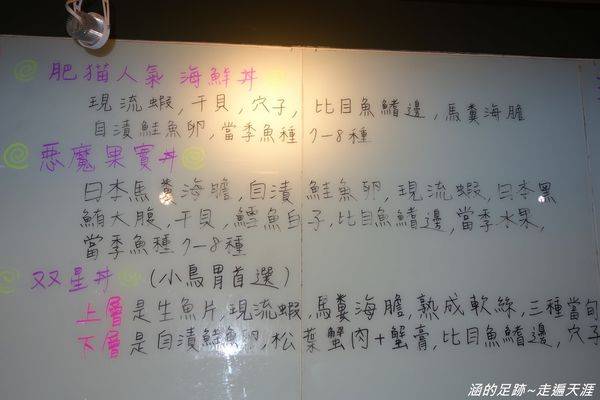 肥猫人氣 海鮮丼
現流蝦, 干貝, 穴子, 比目魚鰭邊, 馬糞海膽
自漬鮭魚卵, 當季魚種 7~8種
惡魔果實丼
日本馬糞海膽, 自漬 鮭魚卵, 現流蝦, 日本黑
鮪大腹, 干貝, 鱈魚白子, 比目魚鰭邊, 當季水果,
當季魚種 7~8種
双星丼 (小鳥胃首選)
上層是生魚片, 現流蝦, 馬糞海膽, 熟成軟絲, 三種當旬
下層是自漬鮭魚卵, 松葉蟹肉+蟹膏, 比目魚鰭邊, 穴子
涵的足跡~走遍天涯